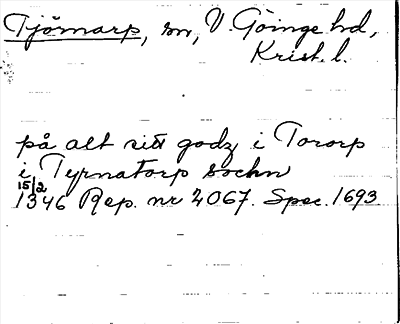 Tjörnarp, sn, V. Göinge hd,
Krist. l.
på alt sitt godz i Tororp
i Tyrnatorp sochn
15/2
1346 Rep. nr 2067. Spec. 1693